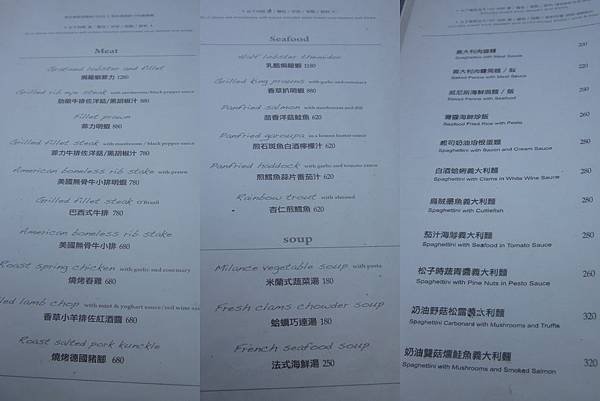 Meat
Gratined lobster and fillet
焗龍蝦菲力 1280
Grilled rib eye steak with mushroom/black pepper sauce
肋眼牛排佐洋菇/黑胡椒汁 880
Fillet prawn
菲力明蝦 880
Grilled fillet steak with mushroom / black pepper sauce
菲力牛排佐洋菇/黑胡椒汁 780
American boneless rib stake with prawn
美國無骨牛小排明蝦 780
Grilled fillet steak O'Brasil
巴西式牛排 780
American boneless rib stake
美國無骨牛小排 680
Roast spring chicken with garlic and rosemary
燒烤春雞 680
led lamb chop with mint & yoghurt sauce/red wine sau
香草小羊排佐紅酒醬 680
Roast salted pork knuckle
燒烤德國豬腳 680
Seafood
Half lobster thermidor
乳酪焗龍蝦 1180
Grilled king prawns with garlic and rosemary
香草扒明蝦 880
Panfried salmon with mushroom and dill
茴香洋菇鮭魚 620
Panfried garoupa in a lemon butter sauce
煎石斑魚白酒檸檬汁 620
Panfried haddock with garlic and tomato sauce
煎鱈魚蒜片蕃茄汁 620
Rainbow trout with almond
杏仁煎鱒魚 620
soup
Milance vegetable soup with pesto
米蘭式蔬菜湯 180
Fresh clams chowder soup
蛤蠣巧達湯 180
French seafood soup
法式海鮮湯 250
義大利肉醬麵 220
Spaghettini with Meat Sauce
義大利肉醬焗麵 / 飯 220
Baked Penne with Meat Sauce
威尼斯海鮮焗麵 / 飯 280
Baked Penne with Seafood
青醬海鮮炒飯 260
Seafood Fried Rice with Pesto
起司奶油培根蛋麵 280
Spaghettini with Bacon and Cream Sauce
白酒蛤蜊義大利麵 280
Spaghettini with Clams in White Wine Sauce
烏賊墨魚義大利麵 280
Spaghettini with Cuttlefish
茄汁海鮮義大利麵 280
Spaghettini with Seafood in Tomato Sauce
松子時蔬青醬義大利麵 260
Spaghettini with Pine Nuts in Pesto Sauce
奶油野菇松露義大利麵 320
Spaghettini Carbonara with Mushrooms and Truffle
奶油蘑菇燻鮭魚義大利麵 320
Spaghettini with Mushrooms and Smoked Salmon